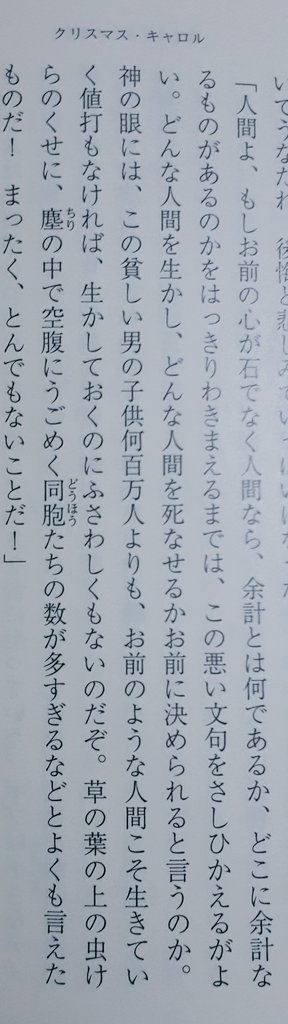 クリスマス・キャロル
いてうなだれ 後悔と悲しみでいっぱいになった
「人間よ、もしお前の心が石でなく人間なら、余計とは何であるか、どこに余計な
るものがあるのかをはっきりわきまえるまでは、この悪い文句をさしひかえるがよ
い。どんな人間を生かし、どんな人間を死なせるかお前に決められると言うのか。
神の眼には、この貧しい男の子供何百万人よりも、お前のような人間こそ生きてい
く値打もなければ、生かしておくのにふさわしくもないのだぞ。草の葉の上の虫け
らのくせに、塵の中で空腹にうごめく同胞たちの数が多すぎるなどとよくも言えた
ものだ！ まったく、とんでもないことだ！」